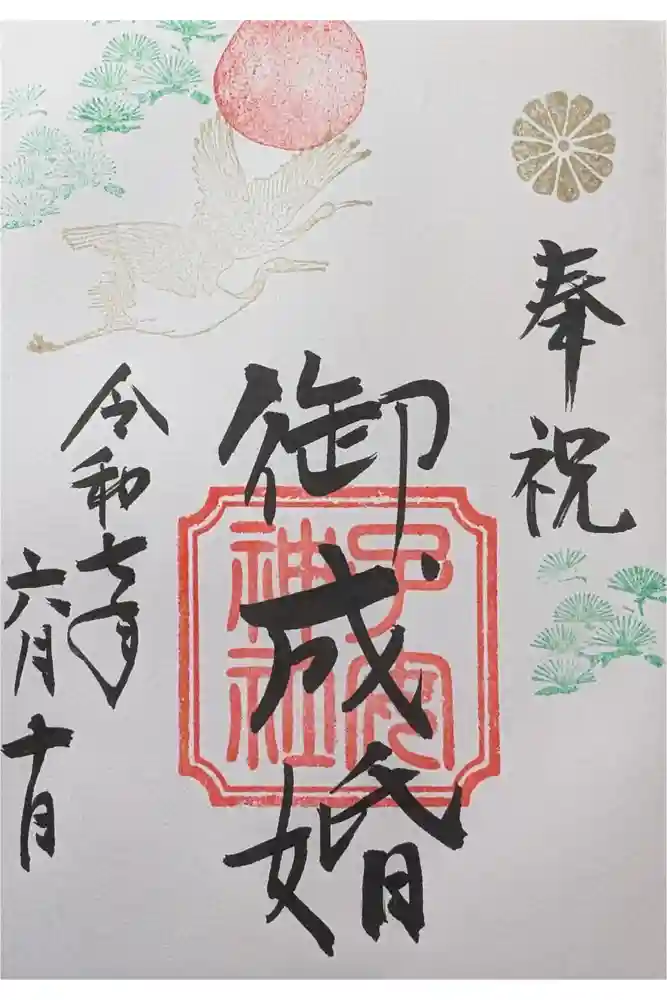 奉祝
御成婚
子安
神社
令和七年
六月十日